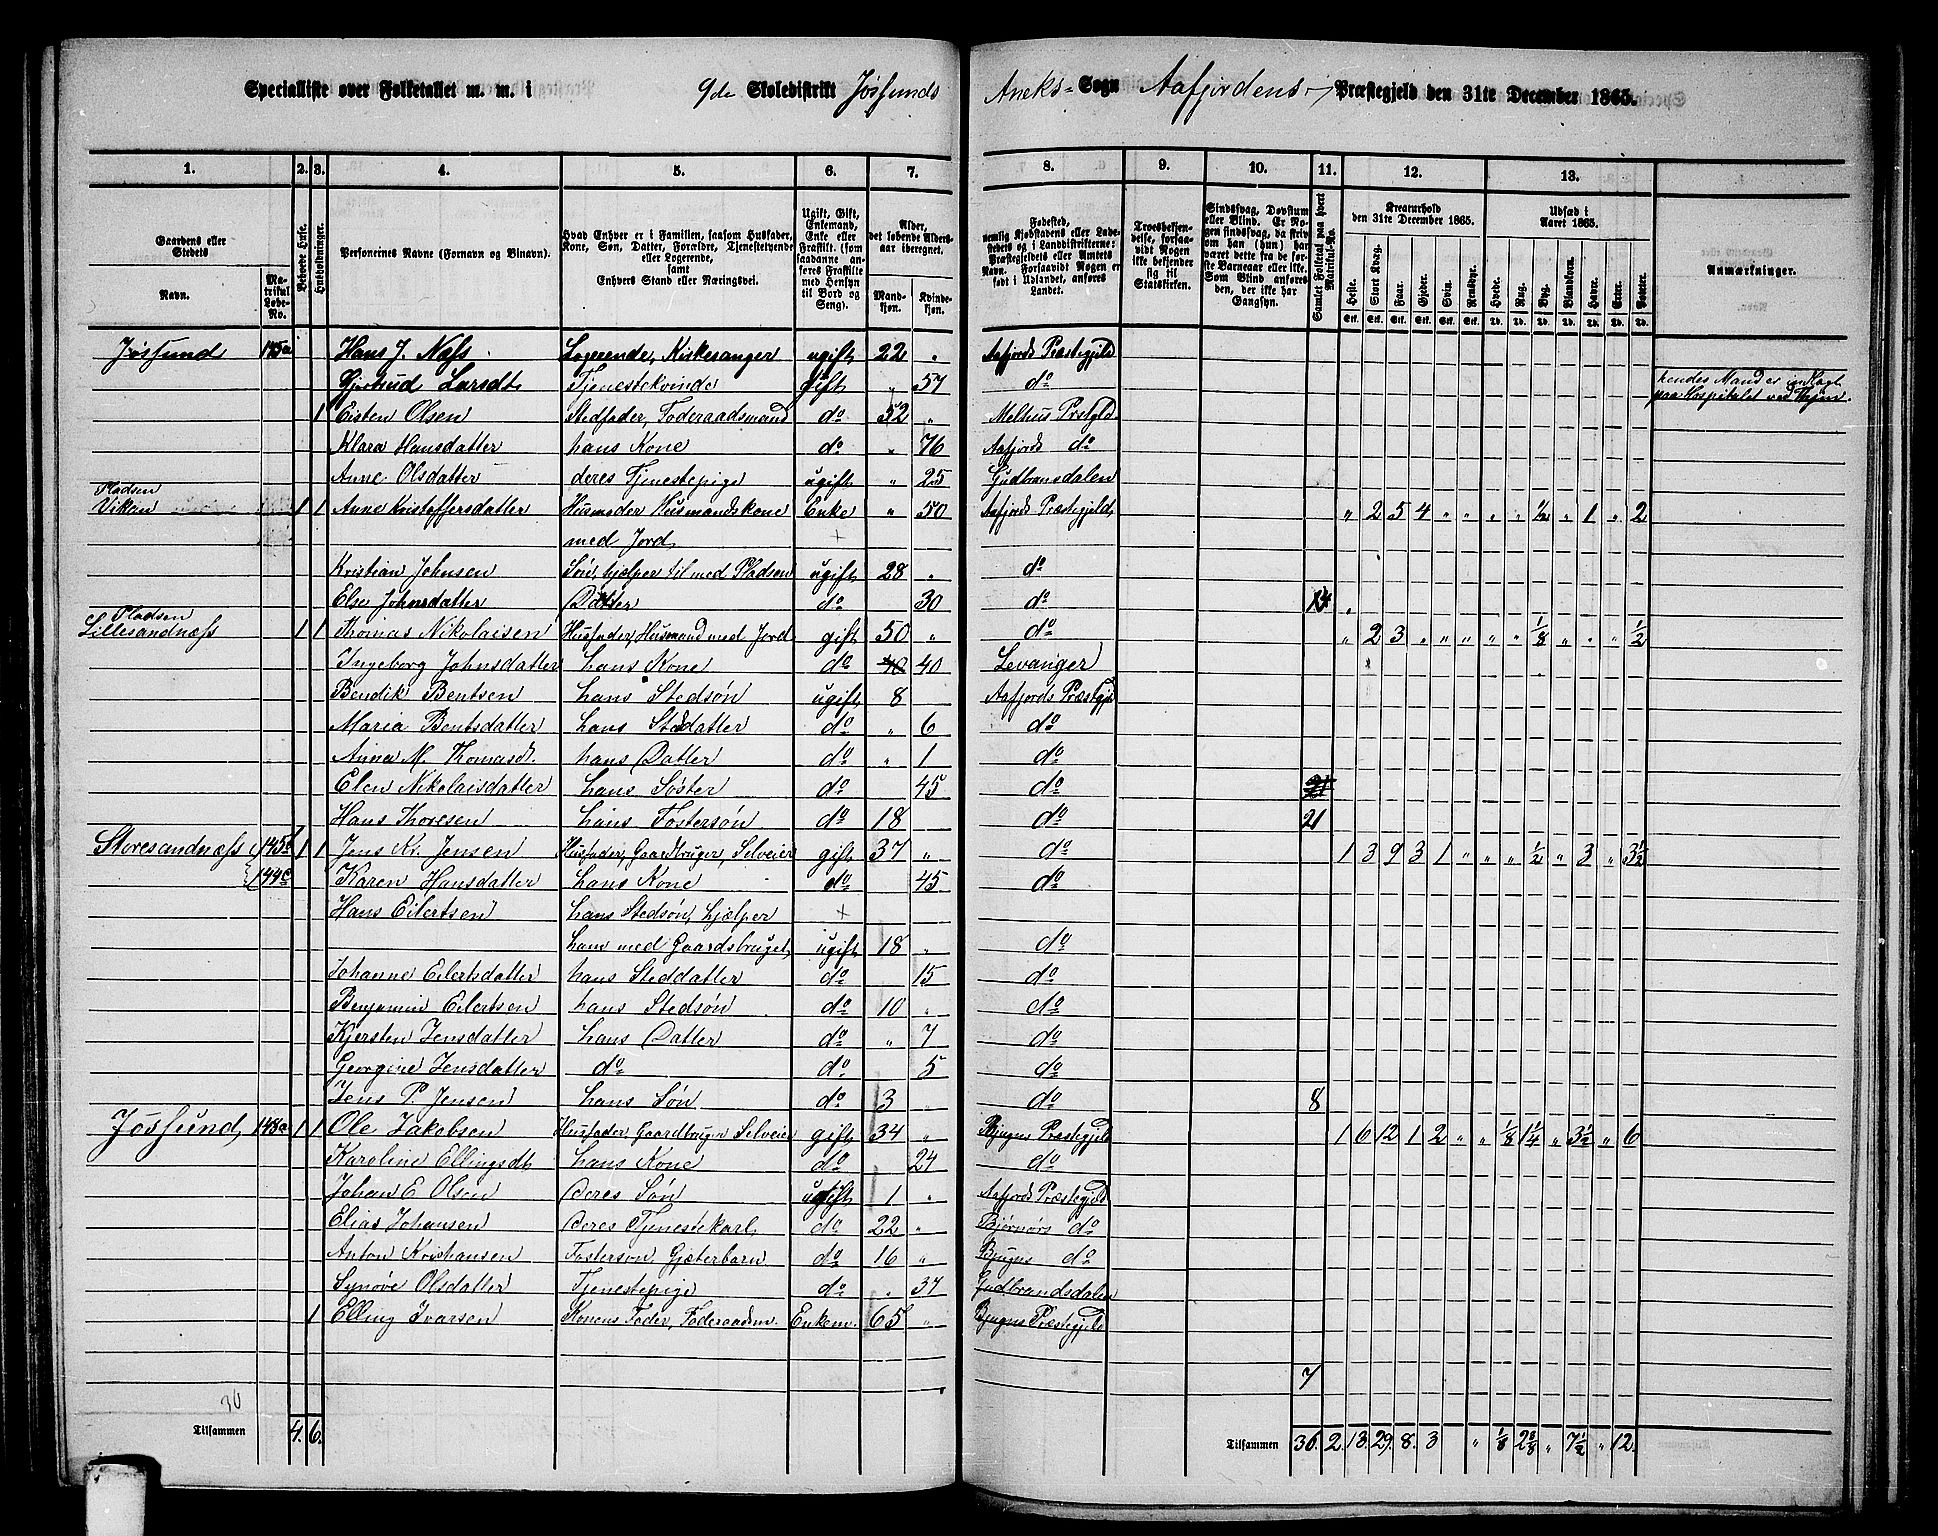 Specialliste over Folketallet m. m. i 9de Skoledistrikt Jøssunds Aneks- Sogn Aafjordens Præstegjeld den 31te December 1865.
1. 2. 3. 4. 5. 6. 7. 8. 9. 10. 11. 12. 13.
Gaardens eller Stedets Navn.
Matrikul Løbe-No.
Beboede Huse.
Husholdninger.
Personernes Navne (Fornavn og Tilnavn).
Hvad Enhver er i Familien, saasom Husfader, Kone, Søn, Datter, Forældre, Tjenestetyende eller Logerende, samt Enhvers Stand eller Næringsvei.
Ugift, Gift, Enkemand, Enke eller Fraskilt. (som saadanne anføres Fraskilte med Hensyn til Bord og Seng).
Alder, det løbende Aldersaar iberegnet.
Mandkjøn. Kvindekjøn.
Fødested, nemlig Kjøbstadens eller Ladestedets og i Landdistrikterne: Præstegjeldets eller Amtets Navn. Forsaavidt Nogen er født i Udlandet, anføres Landet.
Troesbekjendelse, forsaavidt Nogen ikke bekjender sig til Statskirken.
Sindssvag, Døvstum eller Blind. Er Nogen sindssvag, da skrives om han (hun) har været dette fra de første Barneaar eller ikke. Som Blind anføres den, der ikke har Gangsyn.
Samlet Folketal paa hvert Matrikul-No.
Kreaturhold den 31te December 1865.
Heste. Stort Kvæg. Faar. Gjeder. Svin. Rensdyr.
Udsæd i Aaret 1865.
Hvede. Rug. Byg. Blandkorn. Havre. Erter. Poteter.
Anmærkninger.
Jøssund 145a Hans J. Næss Logerende, Kirkesanger ugift 22 " Aafjords Præstegjeld
Gjertrud Larsdt Tjenestekvinde gift " 57 do hendes Mand er indlagt paa Hospitalet ved Thjem.
1 Eisten Olsen Stedfader, Føderaadsmand do 52 " Melhus Præstgld
Klara Hansdatter hans Kone do " 76 Aafjords do
Anne Olsdatter deres Tjenestepige ugift " 25 Gudbransdalen
Pladsen Vikan 1 1 Anne Kristoffersdatter Husmoder Husmandskone Enke " 50 Aafjords Præstegjeld " 2 5 4 " " " " ½ " 1 " 2
med Jord +
Kristian Johnsen Søn, hjælper til med Pladsen ugift 28 " do
Else Johnsdatter Datter do 30 do 14
Pladsen
Lillesandnæss 1 1 Thomas Nikolaisen Husfader, Husmand med Jord gift 50 " do " 2 3 " " " " " 1/8 " " " ½
Ingeborg Johnsdatter hans Kone do 40 40 Levanger
Bendik Bentsen hans Stedsøn ugift 8 Aafjords Præstgj
Maria Bentsdatter hans Steddatter do " 6 do
Anna M. Thomasd. hans Datter do " 1 do
Elen Nikolaisdatter hans Søster do 45 do 21
Hans Thoresen hans Fostersøn do 18 do 21
Storesandnæss 145 1 1 Jens Kr. Jensen Husfader, Gaardbruger, Selveier gift 37 " do 1 3 9 3 1 " " " ½ " 3 " 3½
144c Karen Hansdatter hans Kone do 45 do
Hans Eilertsen hans Stedsøn, hjælper +
ham med Gaardsbruget, ugift 18 " do
Johanne Eilertsdatter hans Steddatter do 15 do
Benjamin Eilertsen hans Stedsøn do 10 " do
Kjersten Jensdatter hans Datter do " 7 do
Georgine Jensdatter do do 5 do
Jens P. Jensen hans Søn do 3 do 8
Jøssund, 148a 1 1 Ole Jakobsen Husfader, Gaardbruger Selveier gift 34 " Bjugns Præstegjeld 1 6 12 1 2 " " 1/8 1¼ " 3½ " 6
Karoline Ellingsdt hans Kone do 24 do
Johan E. Olsen deres Søn ugift 1 " Aafjords Præstegjeld
Elias Johansen deres Tjenestekarl, do 22 " Bjørnørs do
Anton Kristiansen Fostersøn, Gjæterbarn do 16 " Bjugns do
Synøve Olsdatter Tjenestepige do " 37 Gudbrandsdalen
1 Elling Ivarsen Konens Fader, Føderaadsm. Enkem. 65 " Bjugns Præstegjeld
7
30
Tilsammen 4. 6. Tilsammen 36. 2. 13. 29. 8. 3 " 1/8 2 3/8 " 7½ " 12.